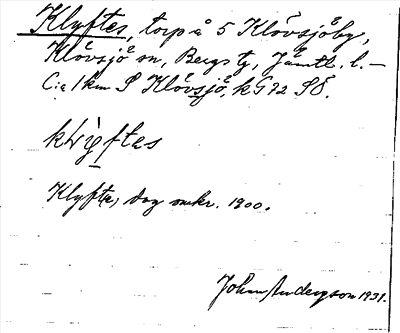 Klyftes, torp å 5 Klövsjöby,
Klövsjö sn, Bergs tg, Jämtl. l. –
C:a 1 km S Klövsjö, k G 72 SÖ.
Klyftes, dag omkr. 1900.
John Anderson 1931.